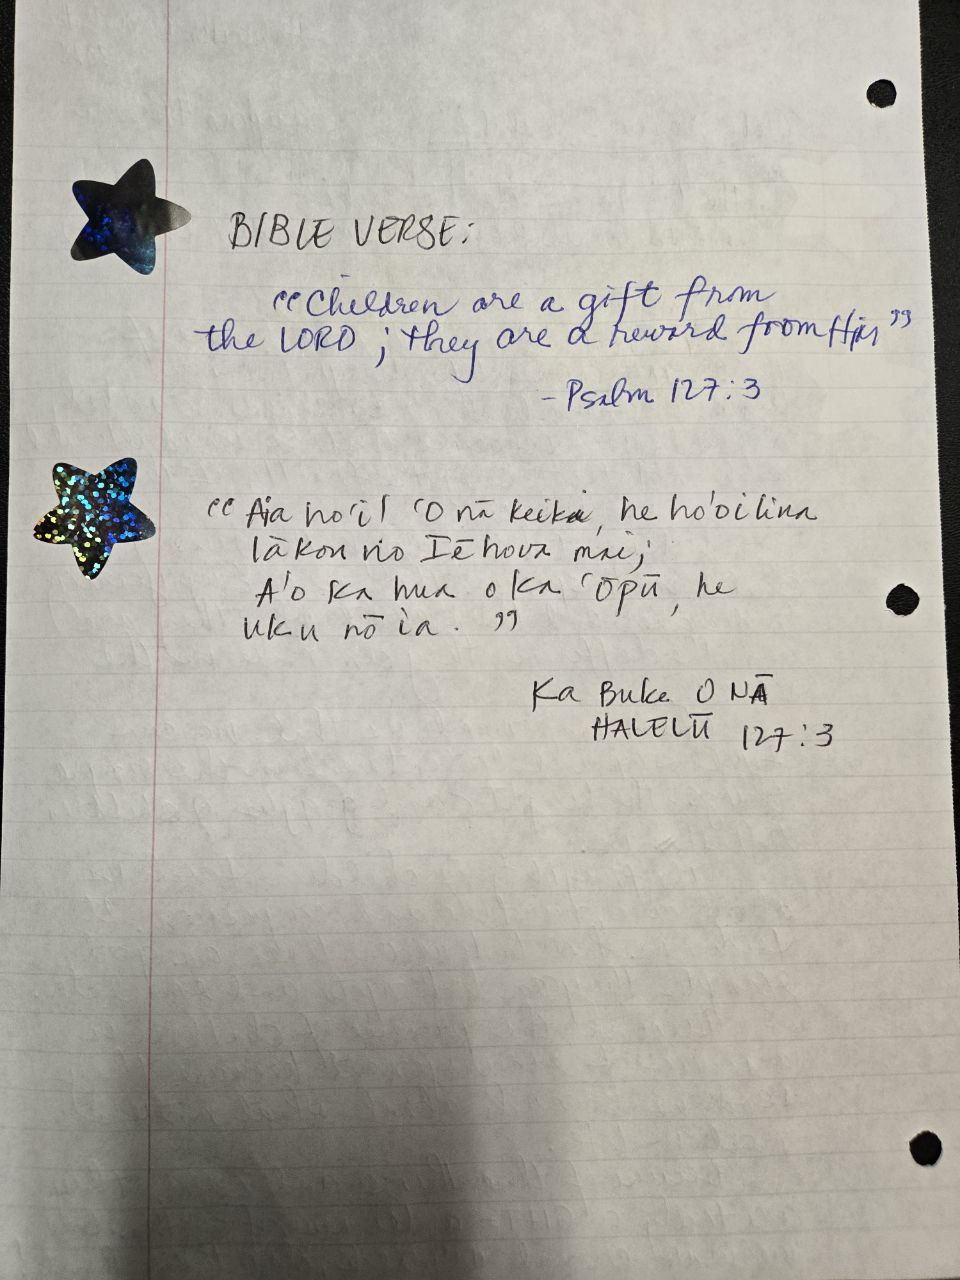 BIBLE VERSE:
“Children are a gift from
the LORD; they are a reward from Him”
- Psalm 127:3
“Aia ho'i! ‘O nā keiki, he ho'oilina
lākou no Iēhova mai;
A'o ka hua o ka ‘ōpū, he
uku nō ia.”
Ka Buke O NĀ
HALELŪ 127:3